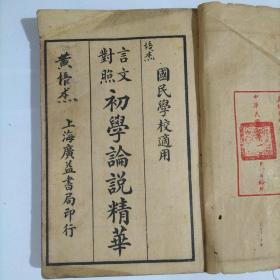 國民學校適用
言文對照
初學論說精華
上海廣益書局印行
中華民